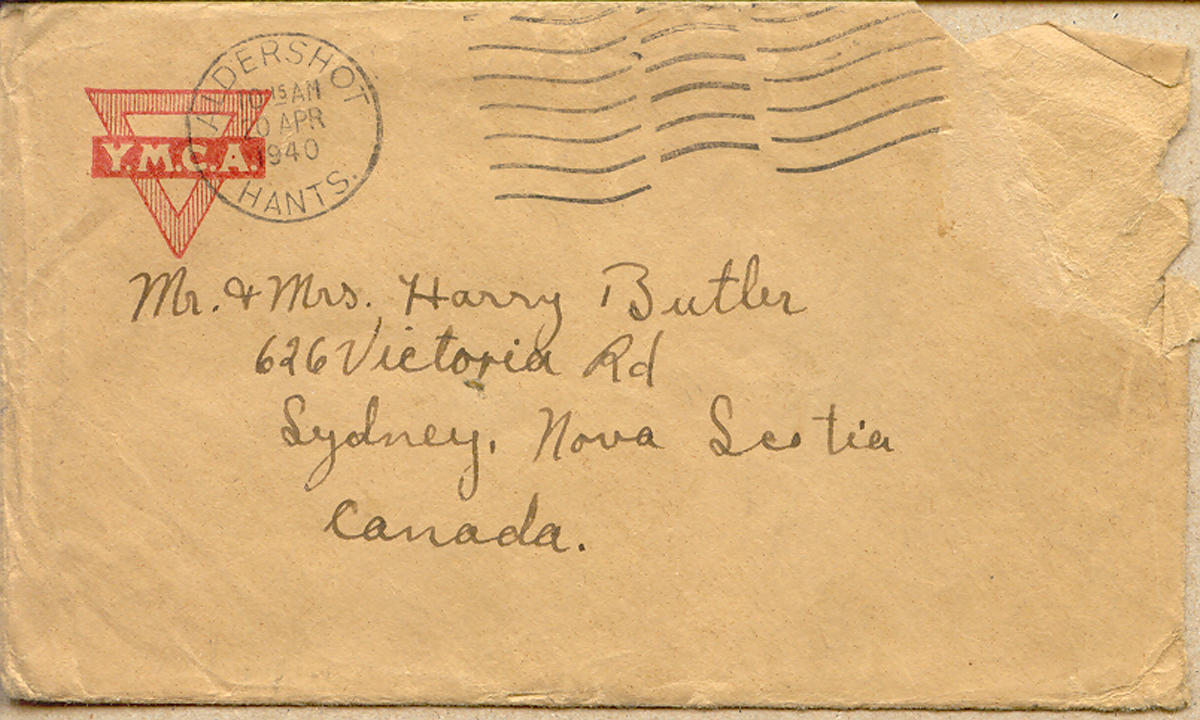 ALDERSHOT
15 AM
0 APR
1940
HANTS.
Y.M.C.A.
Mr. & Mrs. Harry Butler
626 Victoria Rd
Sydney, Nova Scotia
Canada.